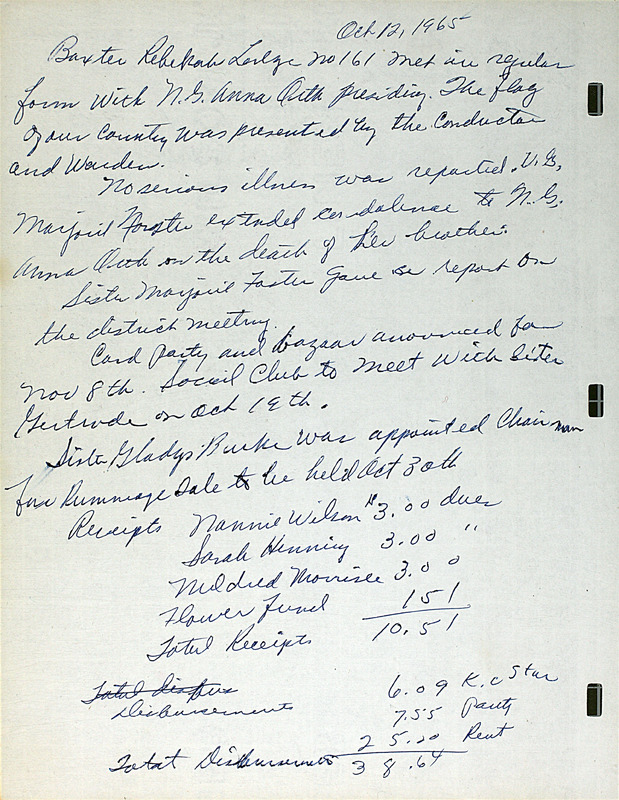 Oct 12, 1965
Baxter Rebekah Lodge no 161 met in regular
form with N.G. Anna Orth presiding. The flag
of our country was presented by the Conductor
and Warden.
No serious illness was reported. V.G.
Marjorie Foster extended condolence to N.G.
Anna Orth on the death of her brother.
Sister Marjorie Foster gave a report on
the district meeting.
Card party and bazaar anounced for
Nov 8th. Social Club to meet with Sister
Gertrude on Oct 19th.
Sister Gladys Burke was appointed Chairman
for Rummage Sale to be held Oct 30th
Receipts Nannie Wilson 3.00 dues
Sarah Henning 3.00 "
Mildred Morrisee 3.00
Flower Fund 151
Total Receipts 10.51
Total Disburs 6.09 K.C Star
Disbursements 7.55 Party
25.20 Rent
Total Disbursements 38.64